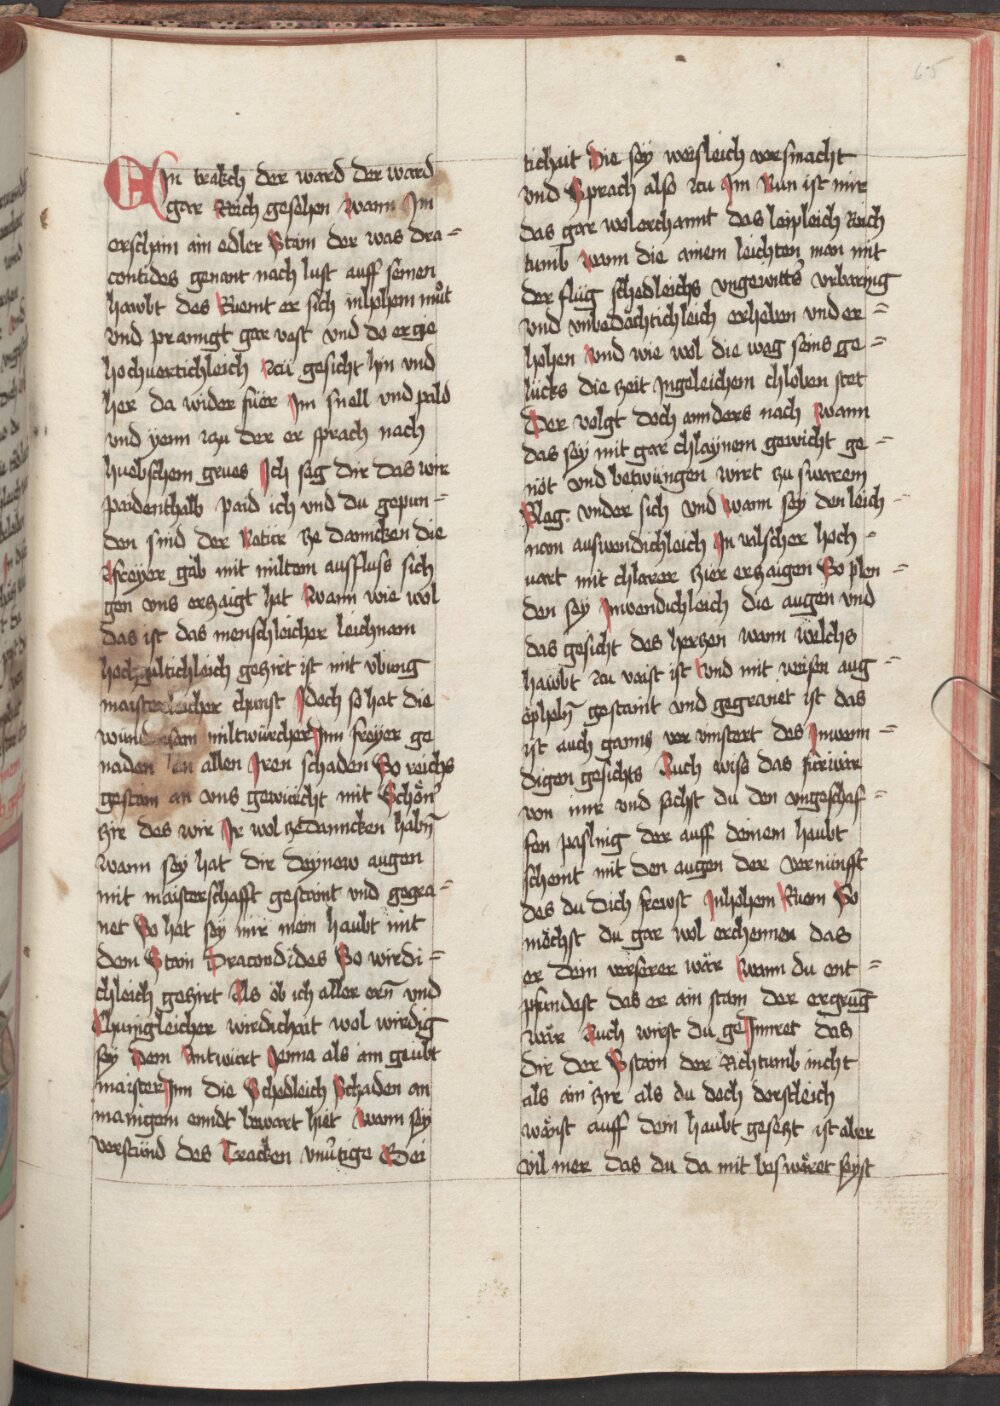 65
EIn trakch der ward der ward
gar Reich gesehen wann Im
erschain ain edler Stain der was dra=
contides genant nach lust auff seinen
hawbt des Ruemt er sich inhohem muͦt
vnd prannigt gar vast vnd do er gie
hochuertichleich Zu gesicht hin vnd
her da wider fuͤr Im snell vnd pald
vnd yenn zu der er sprach nach
huebschem grues Ich sag dir das wir
paidenthalb paid ich vnd du gepun=
den sind der Natur ze dannken die
freyer gab mit miltem ausfluss sich
gen vns erzaigt hat Wann wie wol
das ist das menschleicher leichnam
hochzeltichleich geziert ist mit vbung
maisterleicher chunst Idoch so hat die
wund sam miltwürcherInn freyer ge
naden en allen Iren schaden So reichs
gestain an vns gewürcht mit Schön
zir des wir Ir wol ze dannken habn
wann sey hat dir deynew augen
mit maisterschafft gestaint vnd gegra=
net So hat sey mir mein haubt mit
dem Stain Dracondides So wirdi=
chleich geziert Als ob ich aller ern vnd
Chunigleicher wirdichait wol wirdig
sey Dem Antwurt Jenna als am geubt
maisterInn die Schedleich Schaden an
manigem enndt bewart hiet Wann sey
verstuͤnd des Tracken vnuͤtzige Gei
tichait Die sey weisleich versmacht
vnd Sprach also zu Im Nun ist mir
das gar wol erchannt das leipleich Reich
tumb wann die ainem leichten man mit
der flug schedleichs vngewitters vrbaring
vnd vnbedachtichleich erheben vnd er=
hohen Vnd wie wol die weg seins ge=
lücks die zeit Ingeleichem chloben stet
Der volgt doch annders nach Wann
das sey mit gar chlaynem gewicht ge=
nöt vnd betwungen wirt zu swarem
Slag vnder sich vnd Wann sey den leich=
nam auswendichleich In valscher hoch=
uart mit chlarer zier erzaigen So plen=
den sey Inwendichleich die augen vnd
das gesicht des herzen wann welchs
haubt zu vaist ist Vnd mit weisen aug=
öpheln gestaint vnd gegranet ist das
ist auch gannz ver vinstert des Inwenn=
digen gesichts Auch wiss das furwar
von mir vnd sichst du den vngeschaf=
fen pasling der auff deinem haubt
scheint mit den augen der vernunfft
des du dich frewst Inhohem Ruem So
möchst du gar wol erchennen das
er dein verserer wär Wann du ent=
pfundest das er ain stain der ergrug
wär Auch wirst du geInnret das
dir der Sstain der Richtumb nicht
als ain zir als du doch dorstleich
wänst auff dein haubt gesezt ist aber
vil mer das du da mit beswäret seyst